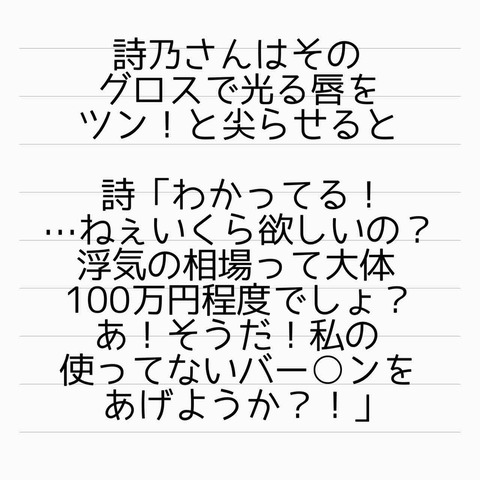 詩乃さんはその
グロスで光る唇を
ツン！と尖らせると
詩「わかってる！
…ねぇいくら欲しいの？
浮気の相場って大体
100万円程度でしょ？
あ！そうだ！私の
使ってないバー○ンを
あげようか？！」